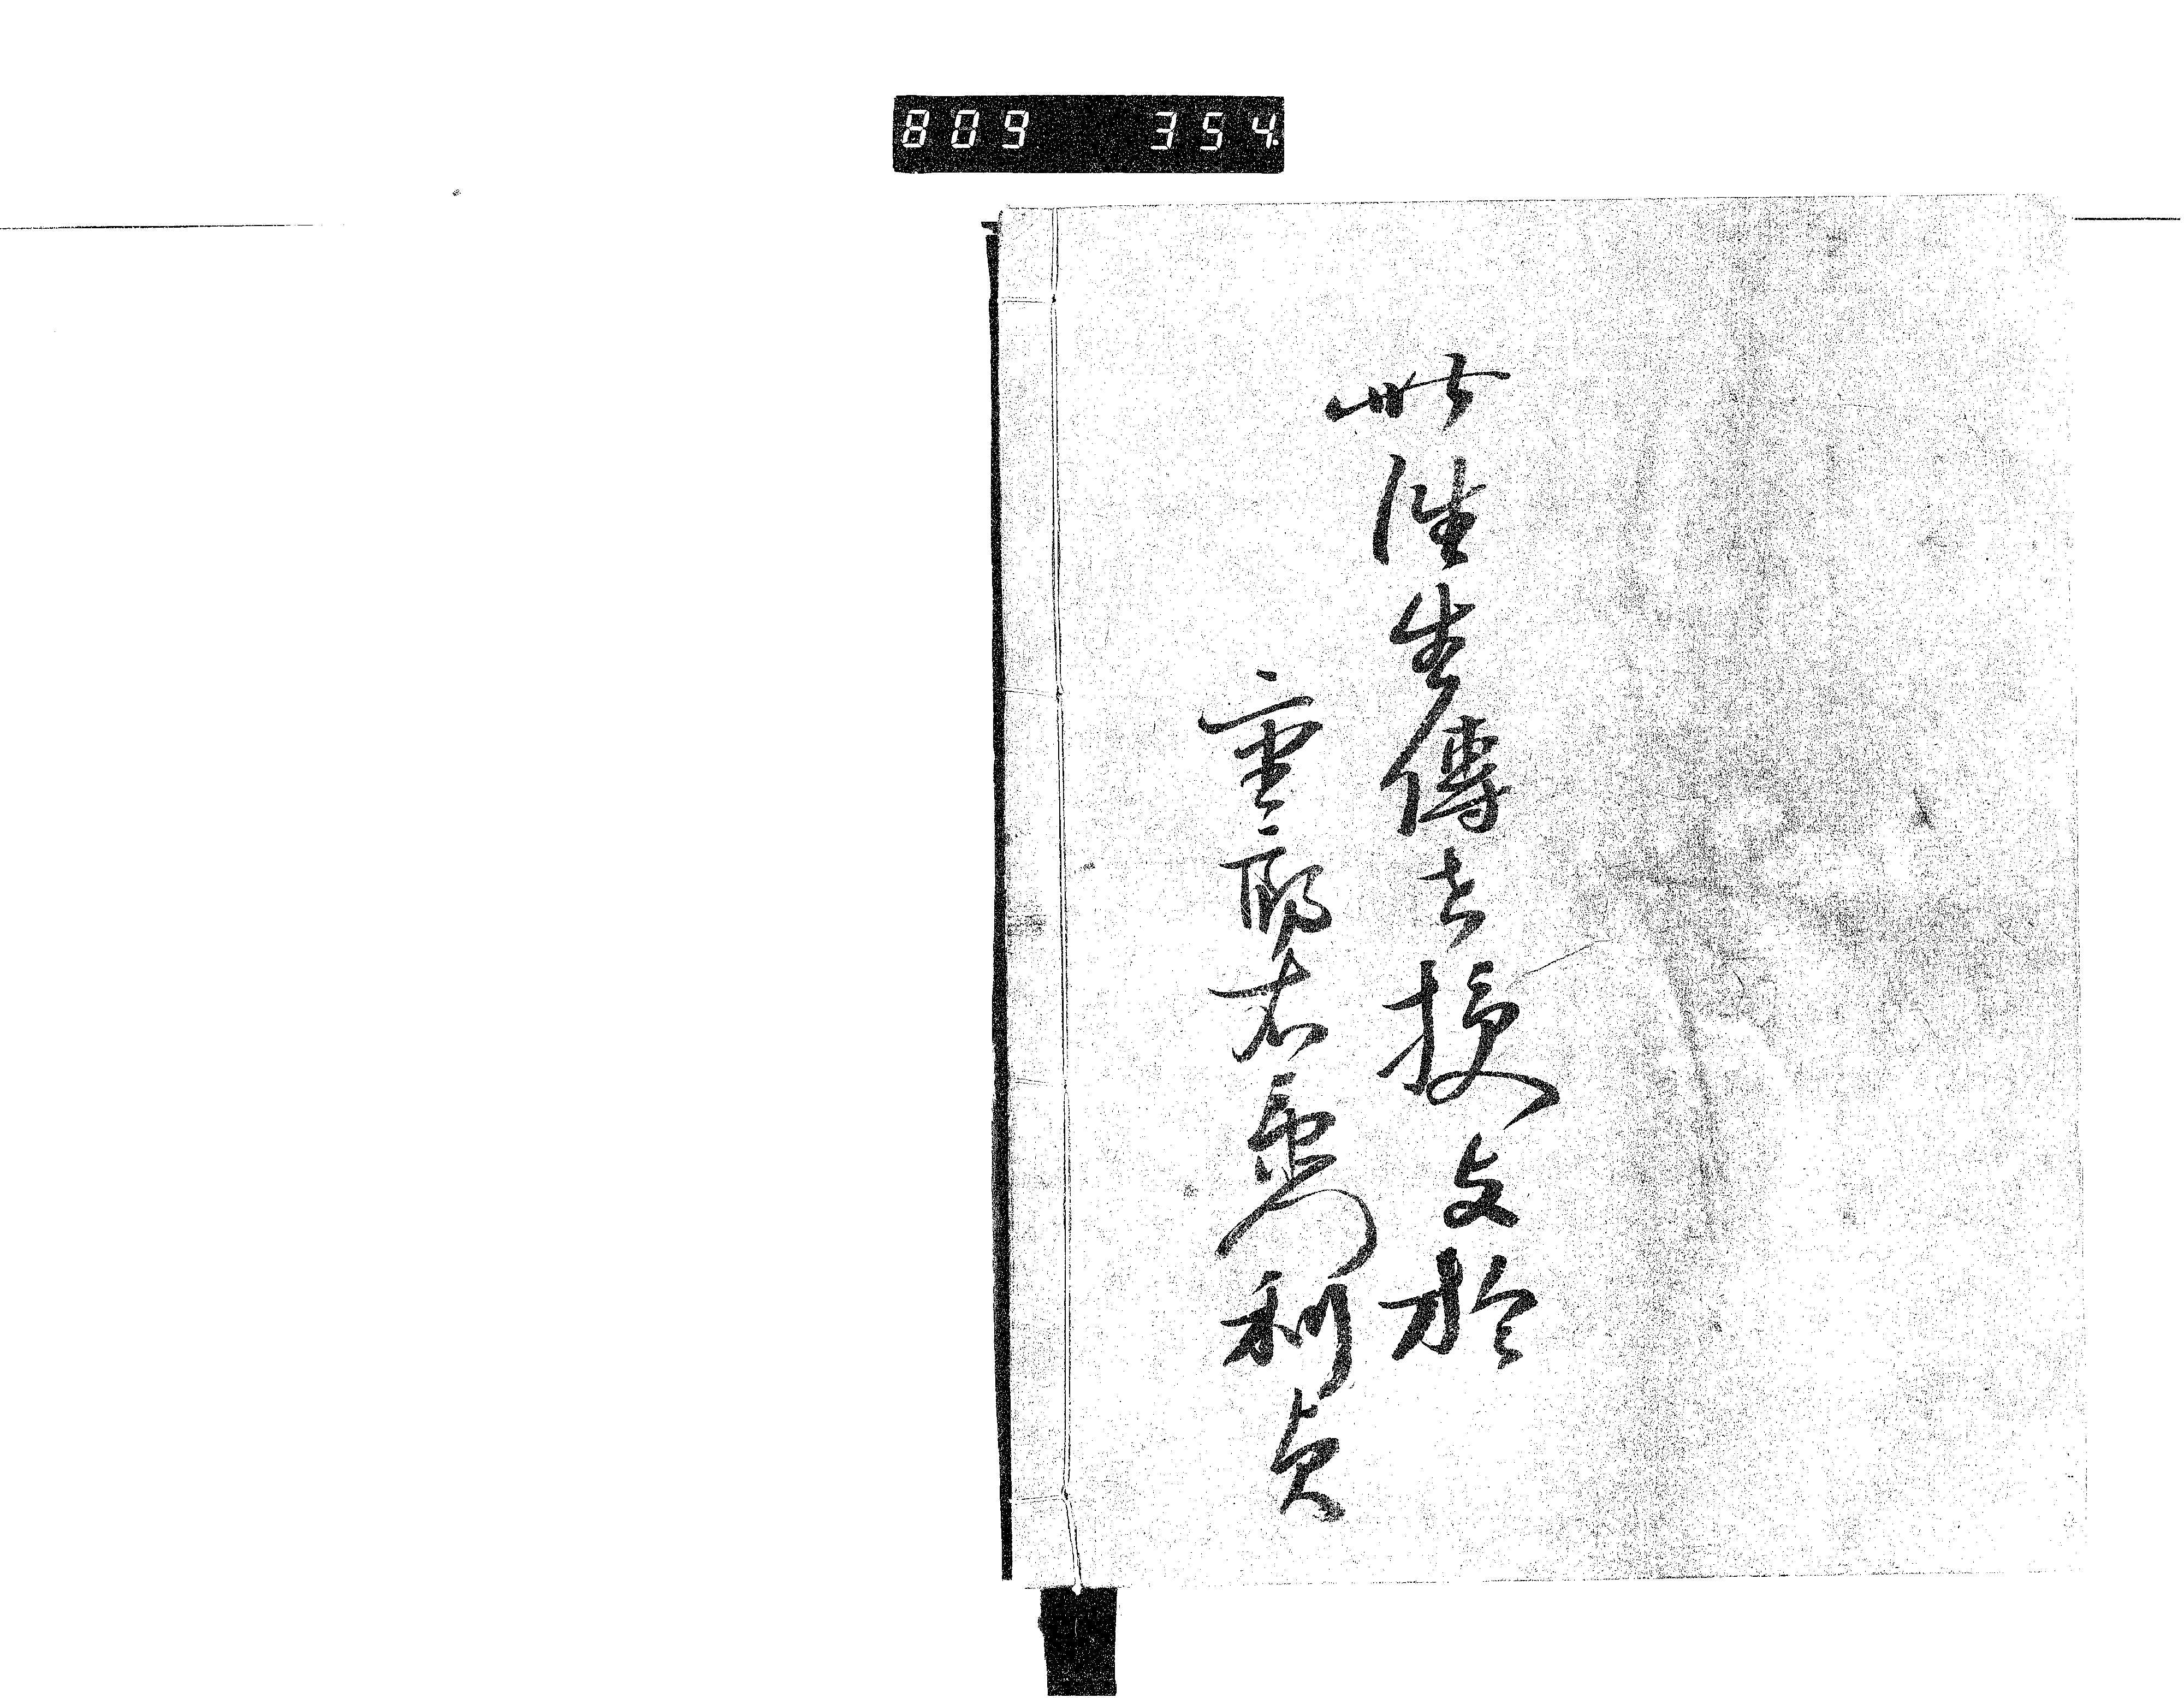 809 354
此往生傳者授与於
重郎右衛門利貞